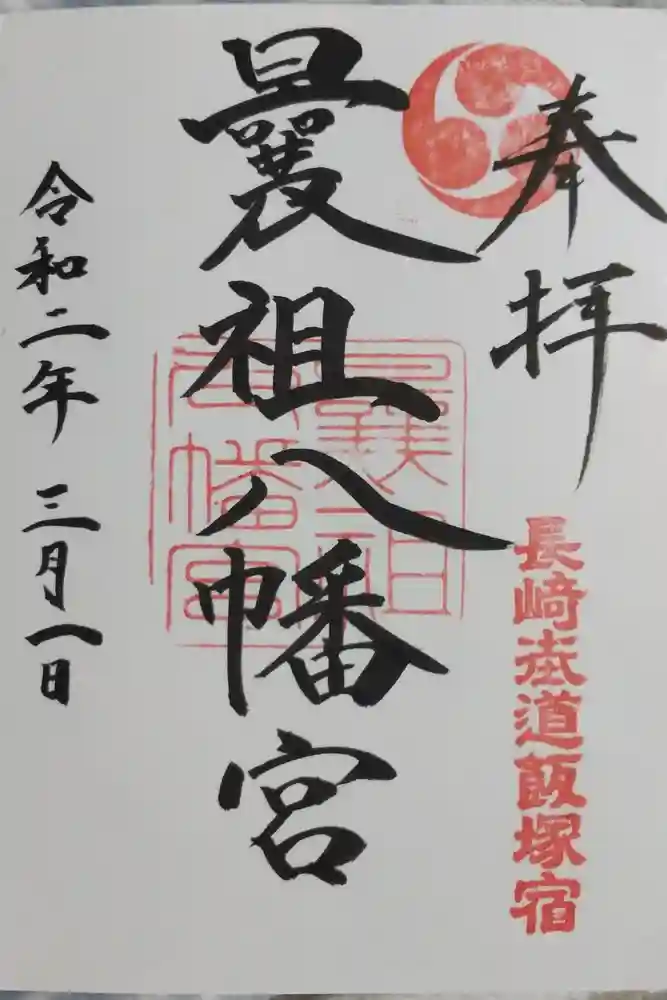 奉拝
長崎街道飯塚宿
曩祖八幡宮
曩祖
八幡宮
令和二年 三月一日